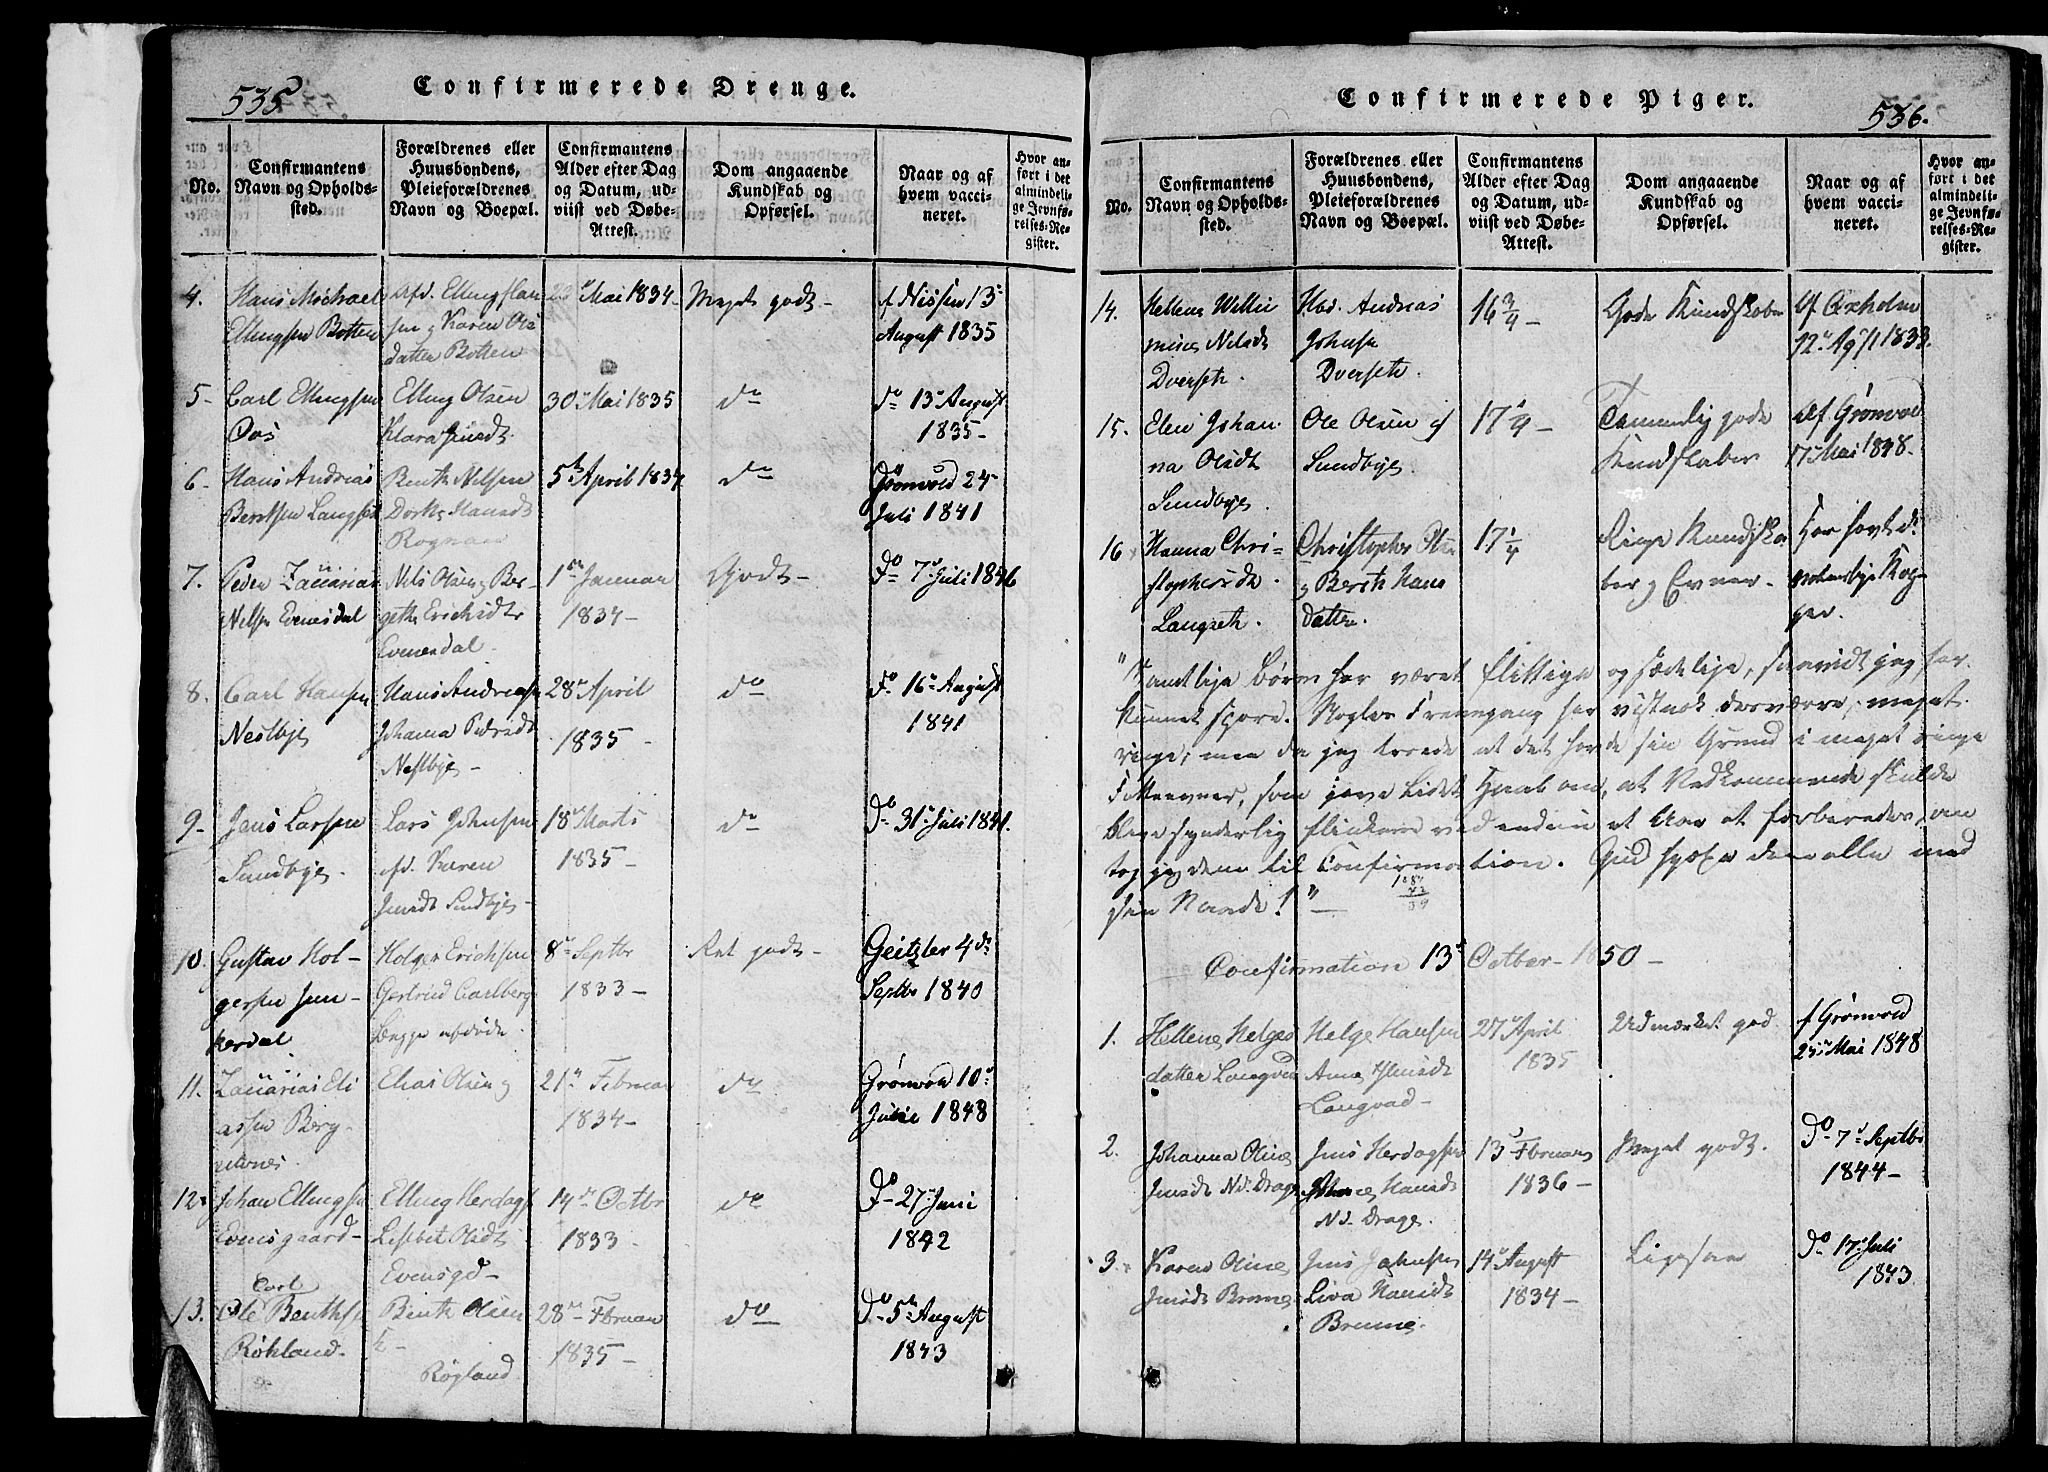 535
Confirmerede Drenge.
No.
Confirmantens
Navn og Opholds-
sted.
Forældrenes eller
Huusbondens,
Pleieforældrenes
Navn og Boepæl.
Confirmantens
Alder efter Dag
og Datum, ud-
viist ved Døbe-
Attest.
Dom angaaende
Kundskab og
Opførsel.
Naar og af
hvem vacci-
neret.
Hvor an-
ført i det
almindeli-
ge Jevnfø-
relses-Re-
gister.
4.
Hans Michael
Ellingsen Botten
Afd. Elling
Karen Ols
datter Botten
Mai 1834
Meget godt
f Nissen 13
August 1835
5
Carl Ellingsen
Elling Olsen
Klara
30 Mai 1835
do
do 13 August
1835
6
Hans Andreas
Berntsen
Bernth Nilsen
Hansdt
Rognan
5 April 1834
do
Grønvold 24
Juli 1841
7.
Peder Zacarias
Nilsen Evenesdal
Nils Olsen Ber-
gethe Erichsdtr
Evenesdal
1 Januar
1834
Godt
do 7 Juli 1846
8.
Carl Hansen
Nestbye
Hans Andreasen
Johanna Pedersdt
Nestbye
28 April
1835
do
do 16 August
1841
9
Jens Larsen
Sundbye
Lars Johnsen
Afd. Karen
Jensdt Sundbye
18 Marts
1835
do
do 31 Juli 1841.
10.
Gustav Hol-
gersen Jun-
kerdal
Holger Erichsen
Gertrud Carlberg
begge afdøde
8 Septbr
1833
Ret godt
Geitzler 4 do
Septbr 1840
11.
Zacarias Eli
assen Berg-
Elias Olsen
21 Februar
1834
do
Grønvold 10
1848
12
Johan Ellingsen
Evensgaard
Elling Herdags
Lisbet Olsdt
Evensgd
14 Octbr
1833
do
do 27 Juni
1842
13.
Carl
Ole Bernths
Røkland
Bernt Olsen
Røgland
28 Februar
1835
do
do 5 August
1843
Confirmerede Piger.
536.
No.
Confirmantens
Navn og Opholds-
sted.
Forældrenes eller
Huusbondens,
Pleieforældrenes
Navn og Boepæl.
Confirmantens
Alder efter Dag
og Datum, ud-
viist ved Døbe-
Attest.
Dom angaaende
Kundskab og
Opførsel.
Naar og af
hvem vacci-
neret.
Hvor an-
ført i det
almindeli-
ge Jevnfø-
relses-Re-
gister.
14.
Hellene Willu
mine Nilsdt
Dverseth.
Hbd. Andreas
Johnsen
Dverseth.
16 3/4
Gode Kundskaber
Af Oxholm
1833.
15.
Elen Johan
na Olsdt
Sundbye
Ole Olsen
Sundbye
17
Temmelig gode
Kundskaber
Af Grønvold
17 Mai 1848.
16
Hanna Chri-
stophersdt.
Langseth.
Christopher Olsen
Bereth Hans
datter.
17 1/4
Ringe Kundska
ber og Evner
Har havt de
naturlige Kop-
per.
"Samtlige Børn har været flittige og sædelige, saavidt jeg har
kunnet spore. Nogles Fremgang har vistnok desværre, meget
ringe; men da jeg troede at det havde sin Grund i meget ringe
Fatteevner, som gave lidet Haab om, at Vedkommende skulde
blive synderlig flinkere ved endnu et Aar at forberedes, an
tog jeg dem til Confirmation. Gud hjælpe dem alle med
sin Naade!"
Confirmation 13 October 1850
1.
Hellene Helges
datter Langvad
Helge Hansen
Anne Jensdt
Langvad
27 April
1835
Udmærket god
f Grønvold
25 Mai 1848
2.
Johanna Oline
Jensdt Nd. Drage
Jens Herdagsen
Hansdt
Nd. Drage.
13 Februar
1836
Meget godt.
do 7 Septbr
1844
3
Karen Oline
Jensdt Brenne
Jens Johnsen
Liva Hansdt
Brenne
14 August
1834
Ligesaa
do 17 Juli
1843